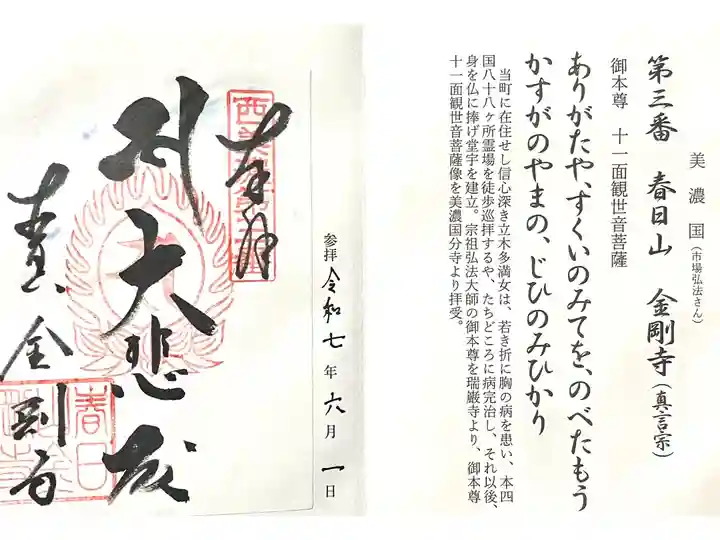 美濃国
(市場弘法さん)
第三番 春日山 金剛寺(真言宗)
御本尊 十一面観世音菩薩
ありがたや、すくいのみてを、のべたもう
かすがのやまの、じひのみひかり
当町に在住せし信心深き立木多満女は、若き折に胸の病を患い、本四
国八十八ヶ所霊場を徒歩巡拝するや、たちどころに病完治し、それ以後、
身を仏に捧げ堂宇を建立。宗祖弘法大師の御本尊を瑞巌寺より、御本尊
十一面観世音菩薩像を美濃国分寺より拝受。
参拝 令和七年六月一日
奉拝
大悲殿
金剛寺